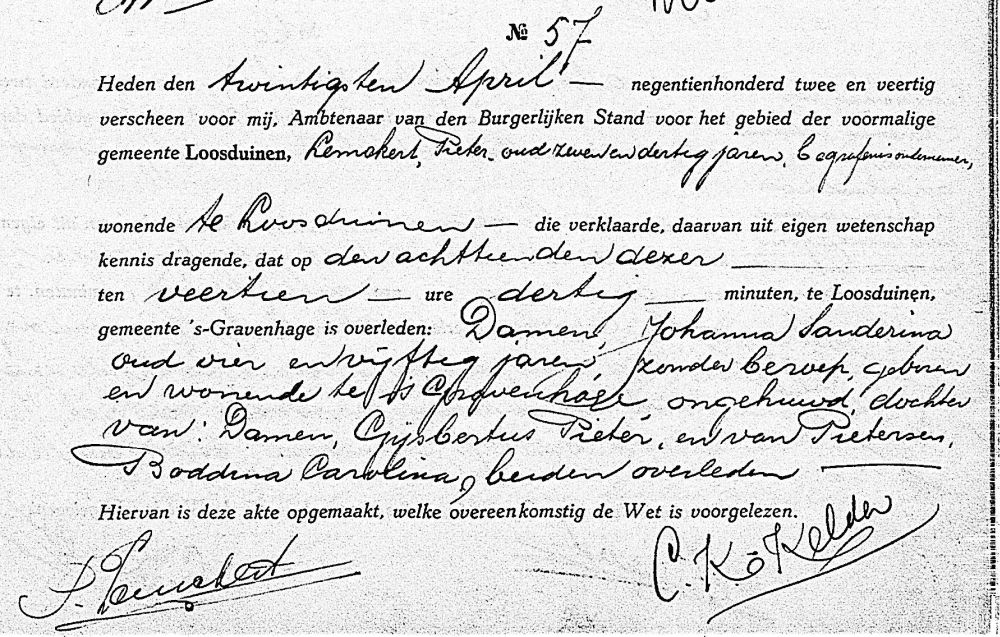 № 57
Heden den twintigsten April — negentienhonderd twee en veertig
verscheen voor mij, Ambtenaar van den Burgerlijken Stand voor het gebied der voormalige
gemeente Loosduinen, Lemckert, Pieter, oud zeven en dertig jaren, begrafenisondernemer,
wonende te Loosduinen — die verklaarde, daarvan uit eigen wetenschap
kennis dragende, dat op den achttienden dezer —
ten veertien — ure dertig — minuten, te Loosduinen,
gemeente 's-Gravenhage is overleden: Damen, Johanna Sanderina
oud vier en vijftig jaren, zonder beroep, geboren
en wonende te 's Gravenhage, ongehuwd, dochter
van: Damen, Gijsbertus Pieter, en van Pietersen,
Boddina Carolina, beiden overleden —
Hiervan is deze akte opgemaakt, welke overeenkomstig de Wet is voorgelezen.
P. Lemckert
C. Kö Kelder